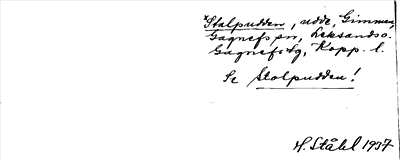 *Stalpudden, udde, Gimmen,
Gagnefs sn, Leksands o.
Gagnefs tg, Kopp. l.
Se Stolpudden!
H. Ståhl 1937